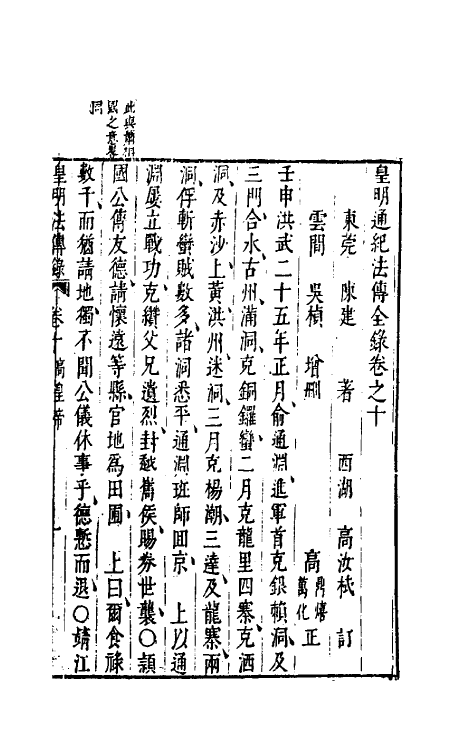 皇明通紀法傳全錄卷之十
東莞 陳建 著 西湖 高汝栻 訂
雲間 吳楨 增刪 高鼎熺萬化 正
壬申洪武二十五年正月俞通淵進軍首克銀賴洞及
三門合水古州蒲洞克銅鑼蠻二月克龍里四寨克洒
洞及赤沙上黃洪州迷洞三月克楊潮三達及龍寨兩
洞俘斬蠻賊數多諸洞悉平通淵班師回京 上以通
淵屢立戰功克纘父兄遺烈封越嶲侯賜券世襲〇潁
國公傅友德請懷遠等縣官地為田圃 上曰爾食祿
數千而猶請地獨不聞公儀休事乎德慙而退〇靖江
皇明法傳錄 卷十 高皇帝 一
此與蕭相
國之意畧
同